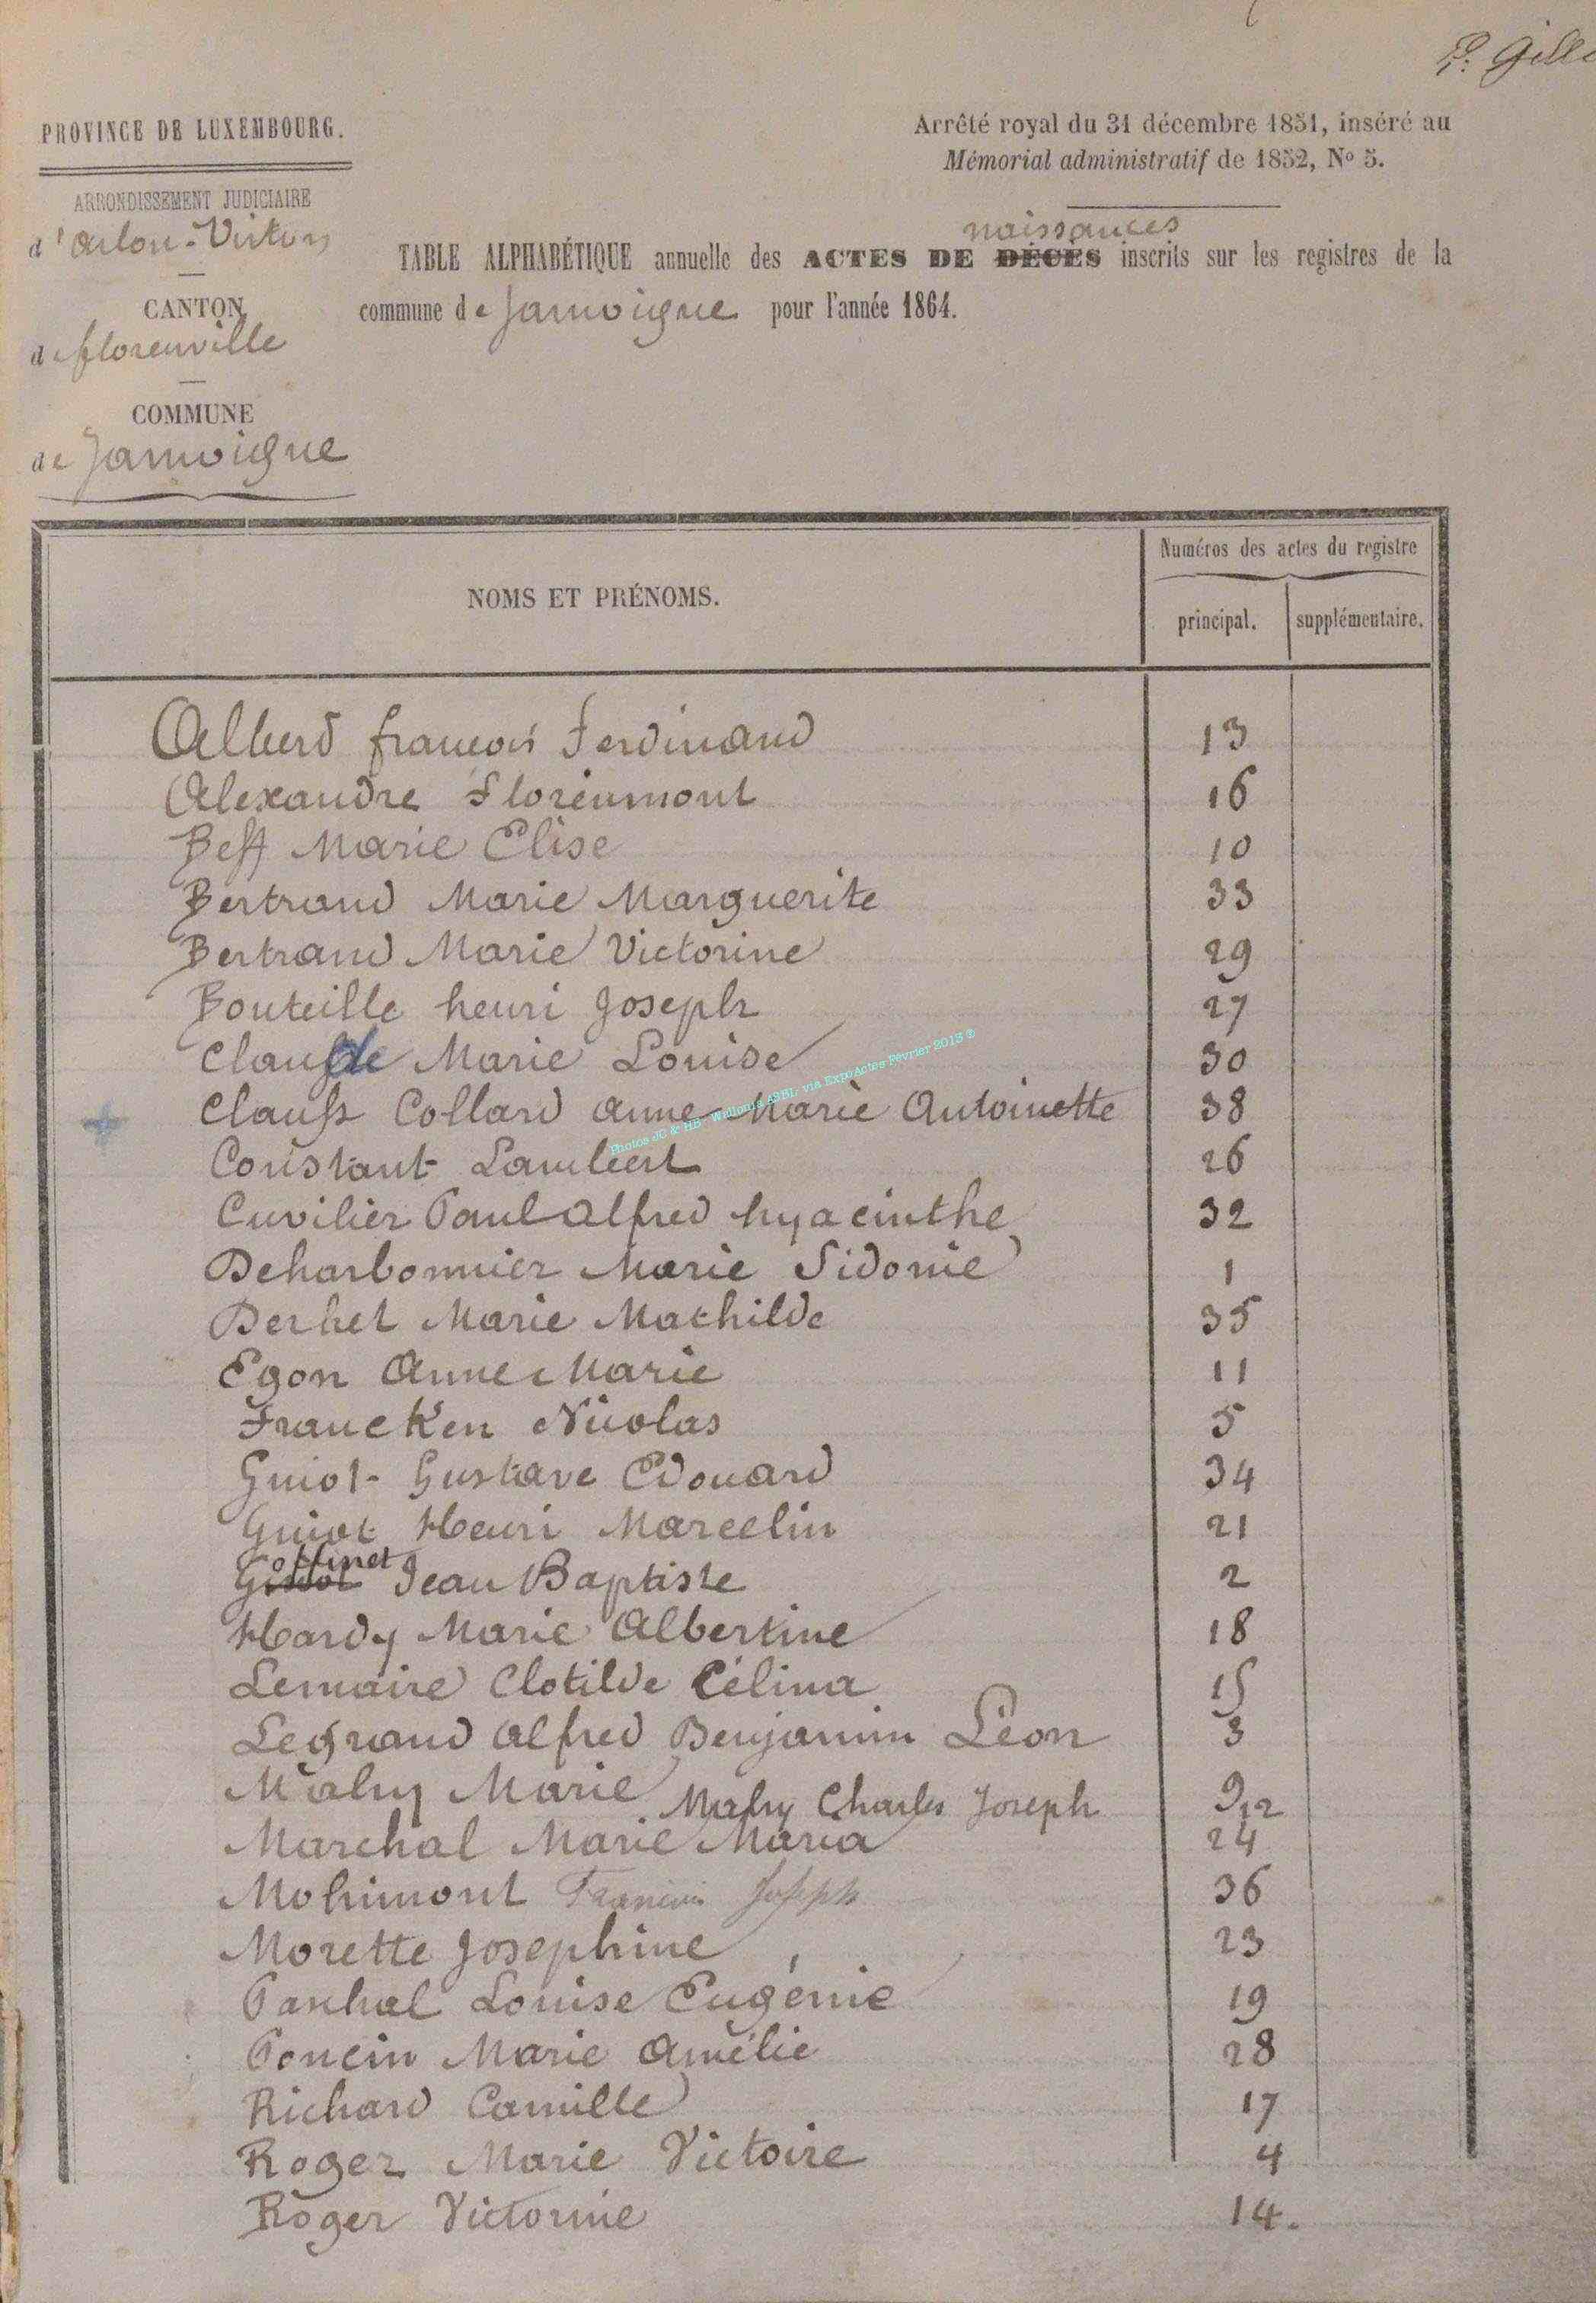 P. Gille
PROVINCE DE LUXEMBOURG.
Arrêté royal du 31 décembre 1851, inséré au
Mémorial administratif de 1852, No 5.
ARRONDISSEMENT JUDICIAIRE
d'Arlon-Virton
naissances
TABLE ALPHABÉTIQUE annuelle des ACTES DE DÉCÈS inscrits sur les registres de la
commune de Jamoigne pour l'année 1864.
CANTON
de florenville
COMMUNE
de Jamoigne
NOMS ET PRÉNOMS.
Numéros des actes du registre
principal. supplémentaire.
Alberd françois Ferdinand 13
Alexandre Florenmont 16
Beff Marie Elise 10
Bertrand Marie Marguerite 33
Bertrand Marie Victorine 29
Bouteille henri Joseph 27
Claude Marie Louise 30
Clauss Collard anne Marie Antoinette 38
Photos JC & HB - Wallonia ASBL via ExpoActes Février 2013 ©
Constant Lambert 26
Cuvilier Paul Alfred hyacinthe 32
Deharbonnier Marie Sidonie 1
Derhet Marie Mathilde 35
Egon Anne Marie 11
Francken Nicolas 5
Guiot Gustave Edouard 34
Guiot Henri Marcelin 21
Goffinet Jean Baptiste 2
Hardy Marie Albertine 18
Lemaire Clotilde Célina 15
Legrand Alfred Benjamin Léon 3
Mahy Marie 9
Mahy Charles Joseph 12
Marchal Marie Maria 24
Mohimont François Joseph 36
Morette Josephine 23
Paschal Louise Eugénie 19
Poncin Marie Amélie 28
Richard Camille 17
Roger Marie Victoire 4
Roger Victorine 14.